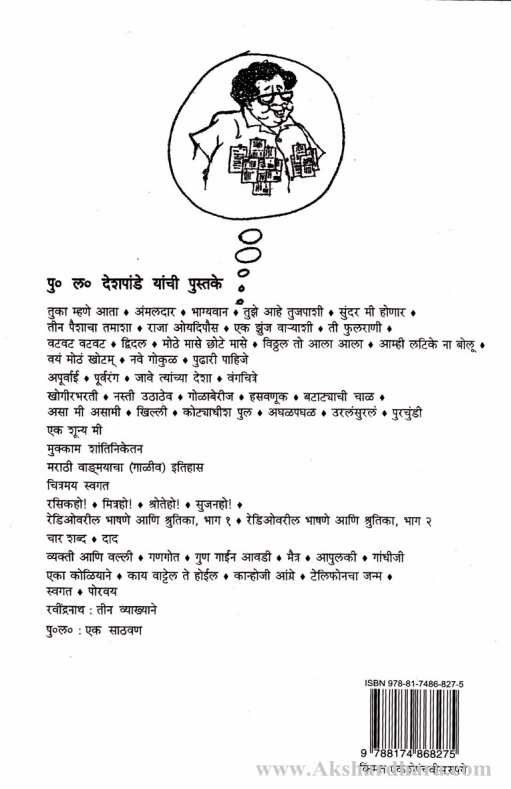 पु० ल० देशपांडे यांची पुस्तके
तुका म्हणे आता ♦ अंमलदार ♦ भाग्यवान ♦ तुझे आहे तुजपाशी ♦ सुंदर मी होणार ♦
तीन पैशाचा तमाशा ♦ राजा ओयदिपौस ♦ एक झुंज वाऱ्याशी ♦ ती फुलराणी ♦
वटवट वटवट ♦ द्विदल ♦ मोठे मासे छोटे मासे ♦ विठ्ठल तो आला आला ♦ आम्ही लटिके ना बोलू ♦
वयं मोठं खोटम् ♦ नवे गोकुळ ♦ पुढारी पाहिजे
अपूर्वाई ♦ पूर्वरंग ♦ जावे त्यांच्या देशा ♦ वंगचित्रे
खोगीरभरती ♦ नस्ती उठाठेव ♦ गोळाबेरीज ♦ हसवणूक ♦ बटाट्याची चाळ ♦
असा मी असामी ♦ खिल्ली ♦ कोट्याधीश पुल ♦ अघळपघळ ♦ उरलंसुरलं ♦ पुरचुंडी
एक शून्य मी
मुक्काम शांतिनिकेतन
मराठी वाङ्मयाचा (गाळीव) इतिहास
चित्रमय स्वगत
रसिकहो! ♦ मित्रहो! ♦ श्रोतेहो! ♦ सुजनहो! ♦
रेडिओवरील भाषणे आणि श्रुतिका, भाग १ ♦ रेडिओवरील भाषणे आणि श्रुतिका, भाग २
चार शब्द ♦ दाद
व्यक्ती आणि वल्ली ♦ गणगोत ♦ गुण गाईन आवडी ♦ मैत्र ♦ आपुलकी ♦ गांधीजी
एका कोळियाने ♦ काय वाट्टेल ते होईल ♦ कान्होजी आंग्रे ♦ टेलिफोनचा जन्म ♦
स्वगत ♦ पोरवय
रवींद्रनाथ : तीन व्याख्याने
पु०ल० : एक साठवण
ISBN 978-81-7486-827-5
9 788174 868275
किंमत एकशेपंचवीस रुपये
www.Akshardhara.com